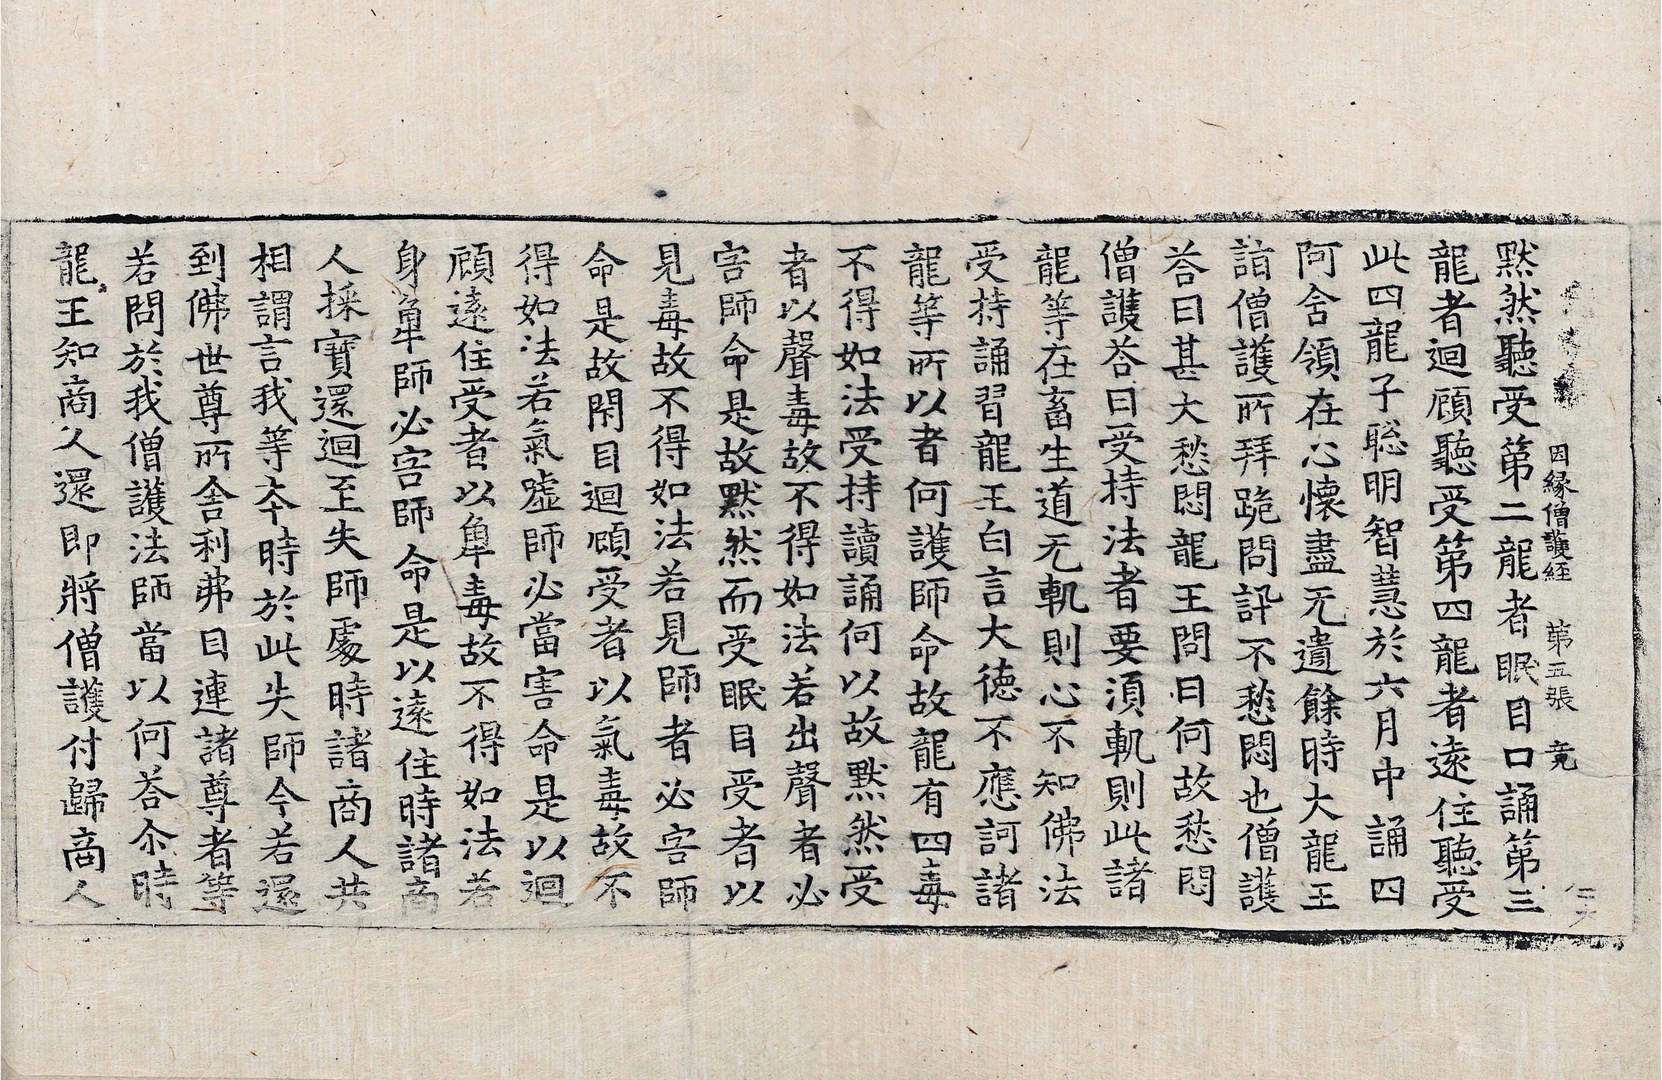 因緣僧護經 第五張 竟
默然聽受第二龍者眠目口誦第三
龍者迴顧聽受第四龍者遠住聽受
此四龍子聡明智慧於六月中誦四
阿含領在心懷盡无遺餘時大龍王
詣僧護所拜跪問訊不愁悶也僧護
荅曰甚大愁悶龍王問曰何故愁悶
僧護荅曰受持法者要湏軌則此諸
龍等在畜生道无軌則心不知佛法
受持誦習龍王白言大德不應訶諸
龍等所以者何護師命故龍有四毒
不得如法受持讀誦何以故默然受
者以聲毒故不得如法若出聲者必
害師命是故默然而受眠目受者以
見毒故不得如法若見師者必害師
命是故閇目迴顧受者以氣毒故不
得如法若氣噓師必當害命是以迴
顧遠住受者以觸毒故不得如法若
身觸師必害師命是以遠住時諸商
人採寶還迴至失師處時諸商人共
相謂言我等夲時於此失師今若還
到佛世尊所舍利弗目連諸尊者等
若問於我僧護法師當以何荅尒時
龍王知商人還即將僧護付歸商人